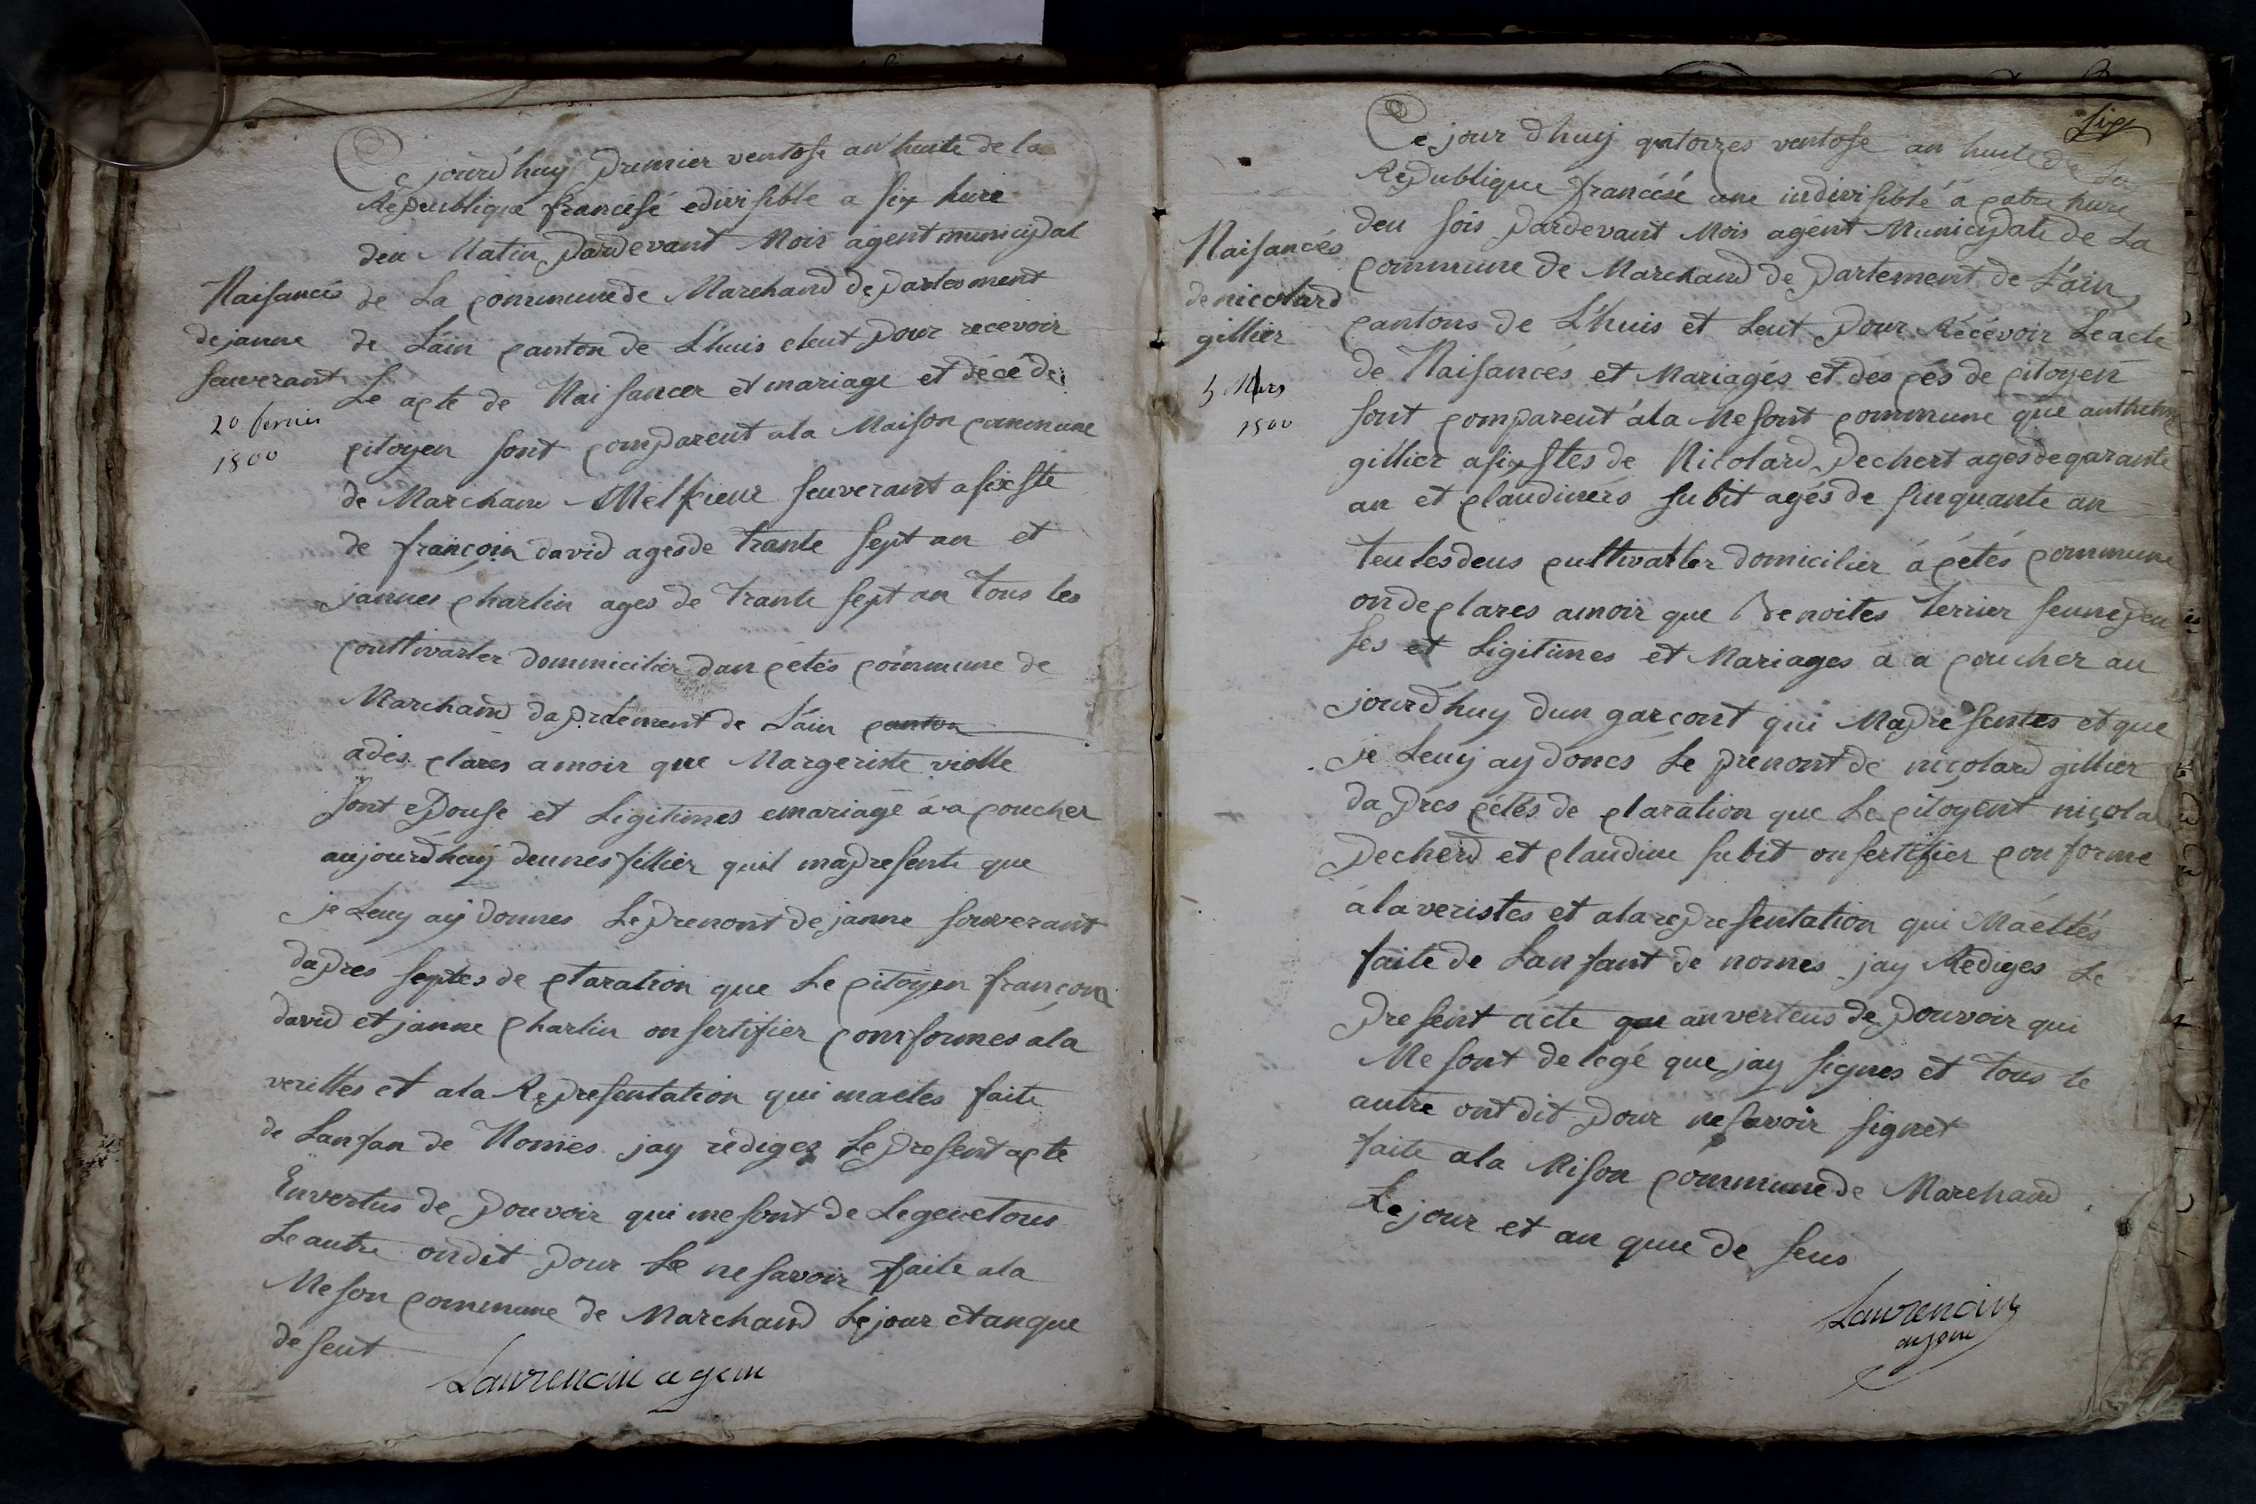 Ce jourd'huy premier ventose an huite de la
Republique francese edivisible a six hure
deu Matin pardevant Mois agent municipal
de La commune de Marchand de partement
de L'ain canton de L'huis eleut pour recevoir
Le acte de Naisancer et mariage et décéde
citoyen sont comparent a la Maison commune
de Marchand souverant asixste
de françoin david ages de trante sept an et
jannes charlin ages de trante sept an tous les
domicilier dan cetés commune de
Marchand de L'ain canton
ades clares amoir que Margeriste violle
sont epouse et Legitimes emariage a a coucher
aujourdhuy deunes fillier quil mapresente que
je Leuy aij donnes Le prenont de janne souverant
dapres septes de claration que Le citoyen françoin
david et janne charlin on sertifier conformes ála
verittes et ala Representation qui maetes faite
de Lanfan de Nomes jay rédiges Le present acte
En vertus de pouvoir qui me sont de Lege et tous
Le autre on dit pour Le ne savoir faite ala
Meson commune de Marchand Le jour et an que
de seut
Laurencin agent
Naisances
de janne
souverant
20 fevrier
1800
six
Ce jour d'huy qatorzes ventose an huite de la
Republique francésé une indivisiblé á catre hure
deu sois pardevant Mois agént Municipale de La
commune de Marchand de partement de L'ain
cantons de L'huis et Leut pour Récévoir Le acte
de Naisancés et Mariagés et des cés de citoyen
sont comparent ála Mesont commune que
gillier asixstes de Nicolard Dechert ages de qarante
an et claudines subit agés de sinquante an
teules deus cultivatler domicilier á cétés commune
on de clares amoir que Benoites terrier
ses et Ligitimes et Mariages a a coucher au
jourdhuy dun garcont qui Mapresentes et que
je Leuy ay doncs Le prénont de nicolard gillier
dapres cétés de claration que Le citoyent nicola
Decherd et claudine subit on sertifier conforme
á la veristes et ala representation qui Maéttés
faite de Lanfant de nomes jay Rediges Le
present acte que an verteus de pouvoir qui
Me sont delegé que jay signes et tous le
autre ont dit pour ne savoir signet
faite ala Mison commune de Marchand
Le jour et an que de seus
Laurencin
agent
Naisancés
de nicolard
gillier
5 Mars
1800